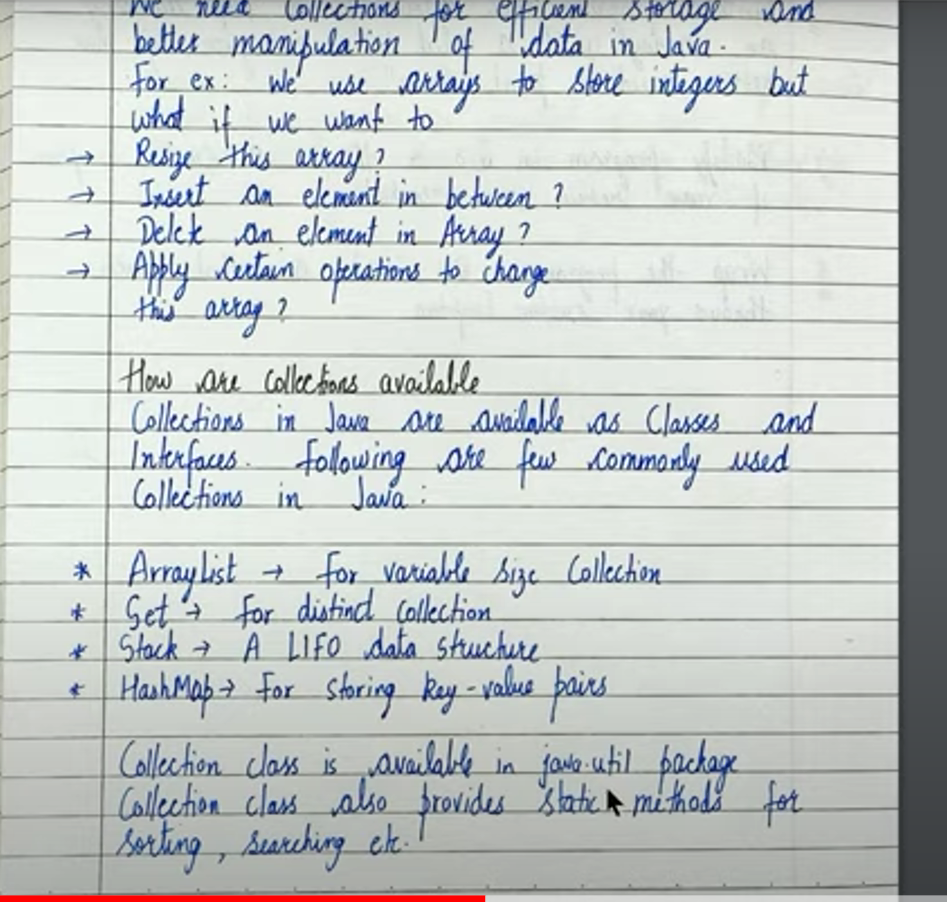 We need Collections for efficient storage and
better manipulation of data in Java.
For ex: We use arrays to store integers but
what if we want to
→ Resize this array?
→ Insert an element in between?
→ Delete an element in Array?
→ Apply certain operations to change
this array?
How are collections available
Collections in Java are available as Classes and
Interfaces. Following are few commonly used
Collections in Java:
* ArrayList → For variable size Collection
* Set → For distinct collection
* Stack → A LIFO data structure
* HashMap → For storing key-value pairs
Collection class is available in java.util package
Collection class also provides static methods for
sorting, searching etc.